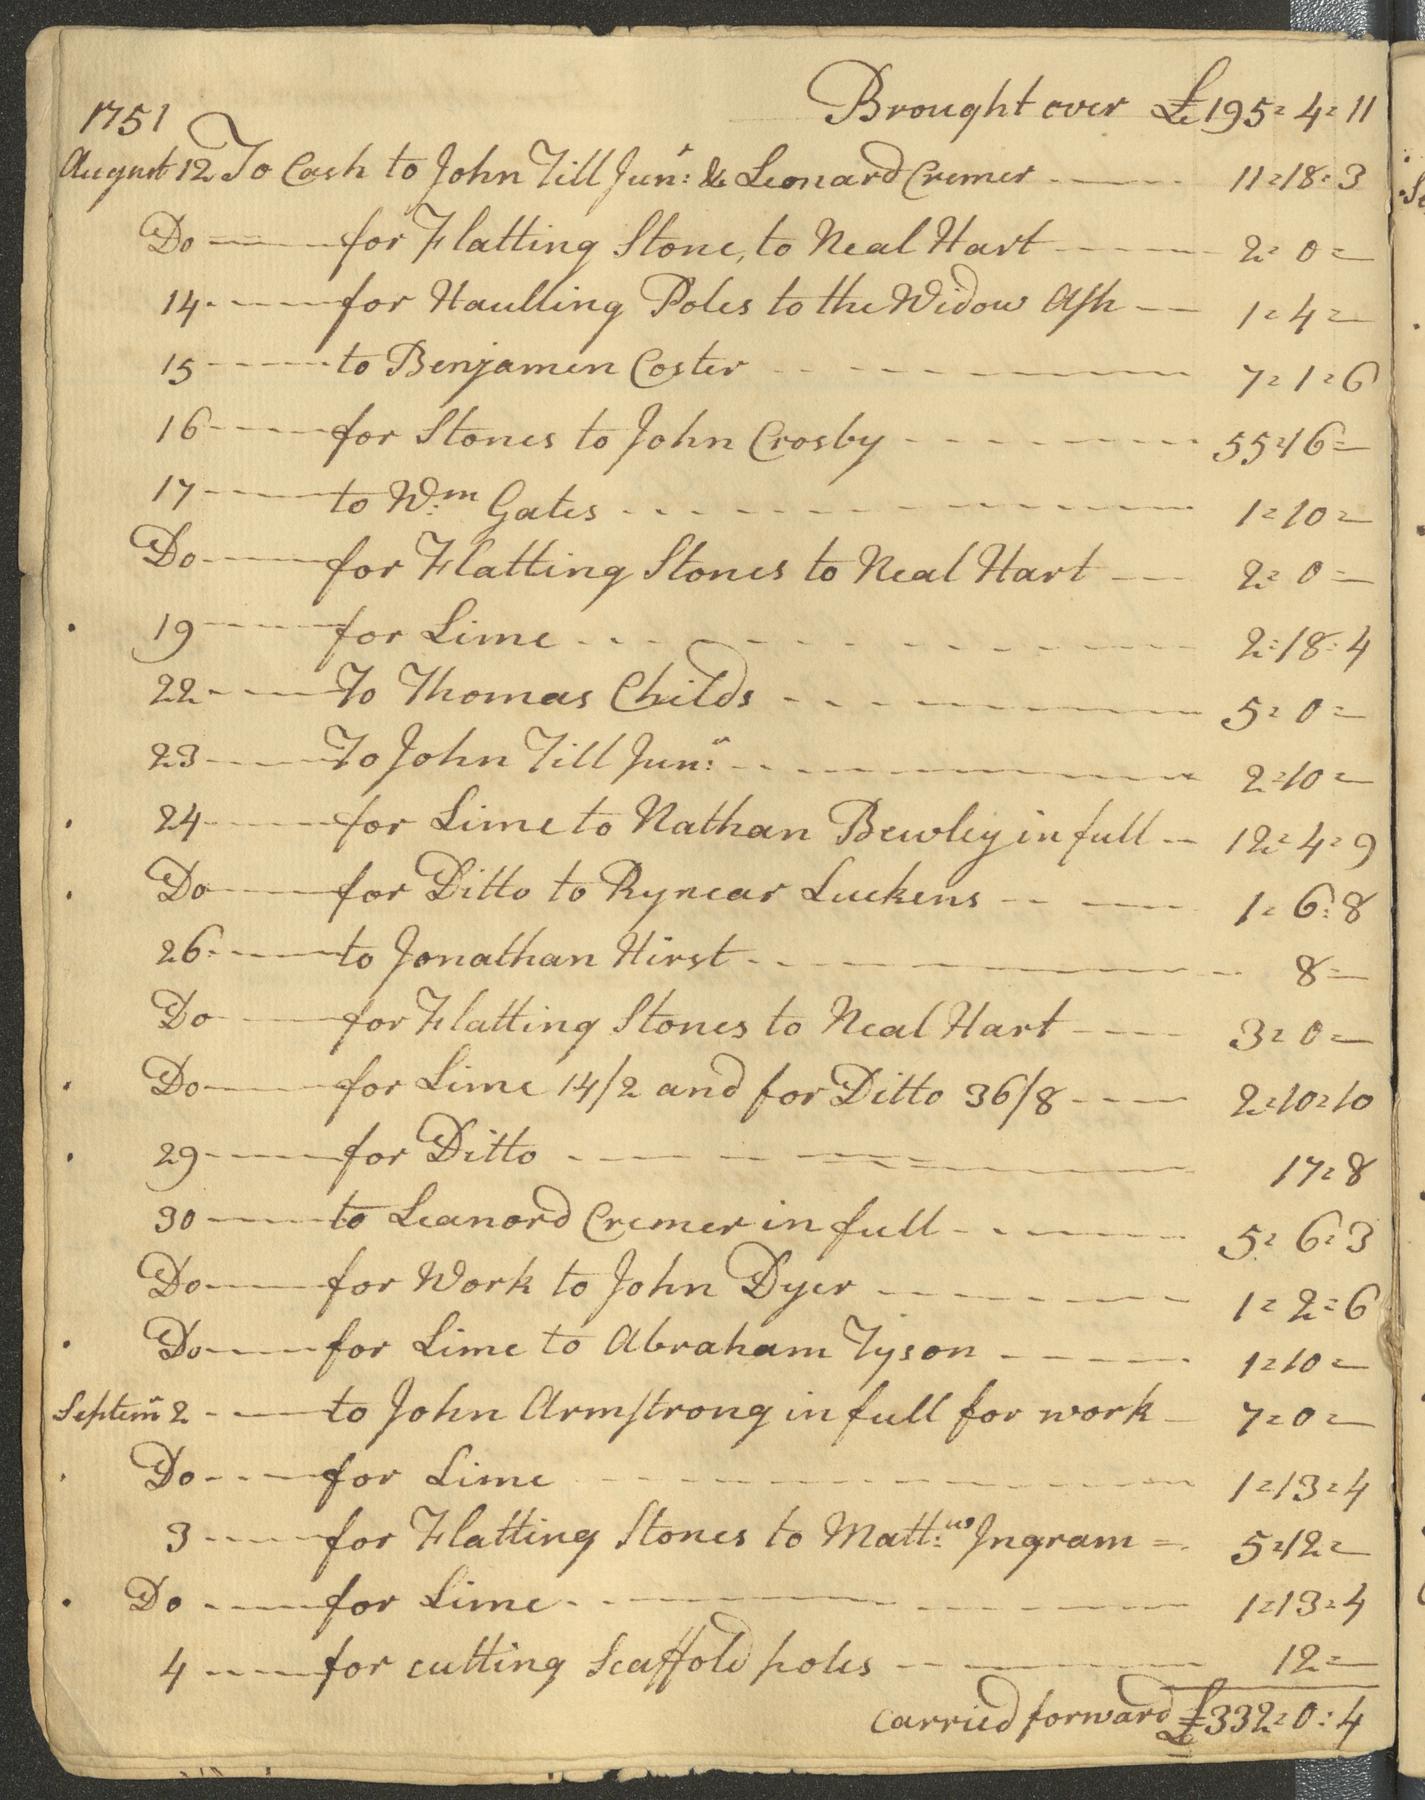 Brought over £195=4=11
1751
August 12 To Cash to John Till Junr: & Leonard Cremer 11=18=3
Do for Flatting Stone, to Neal Hart 2=0=
14 for Haulling Poles to the Widow Ash 1=4=
15 to Benjamen Coster 7=1=6
16 for Stones to John Crosby 55=16=
17 to Wm: Gates 1=10=
Do for Flatting Stones to Neal Hart 2=0=
19 for Lime 2=18=4
22 To Thomas Childs 5=0=
23 To John Till Junr: 2=10=
24 for Lime to Nathan Bewley in full 12=4=9
Do for Ditto to Rynear Luckens 1=6=8
26 to Jonathan Hirst 8=
Do for Flatting Stones to Neal Hart 3=0=
Do for Lime 14/2 and for Ditto 36/8 2=10=10
29 for Ditto 17=8
30 to Leanord Cremer in full 5=6=3
Do for Work to John Dyer 1=2=6
Do for Lime to Abraham Tyson 1=10=
Septemr 2 to John Armstrong in full for work 7=0=
Do for Lime 1=13=4
3 for Flatting Stones to Matt:ws Ingram 5=12=
Do for Lime 1=13=4
4 for cutting Scaffold poles 12=
carried forward £332=0:4